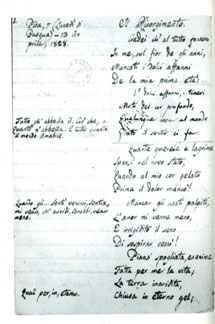 Pisa, 7 (Lunedì di
Pasqua) — 13 A-
prile, 1828.
Il Risorgimento.
Credei ch'al tutto fossero
In me, sul fior degli anni,
Mancati i dolci affanni
Della mia prima età:
I dolci affanni, i teneri
Moti del cor profondo,
Qualunque cosa al mondo
Grato il sentir ci fa.
Quante querele e lagrime
Sparsi nel novo stato,
Quando al mio cor gelato
Prima il dolor mancò!
Mancar gli usati palpiti,
L'amor mi venne meno,
E irrigidito il seno
Di sospirar cessò!
Piansi spogliata, esanime
Fatta per me la vita,
La terra inaridita,
Chiusa in eterno gel;